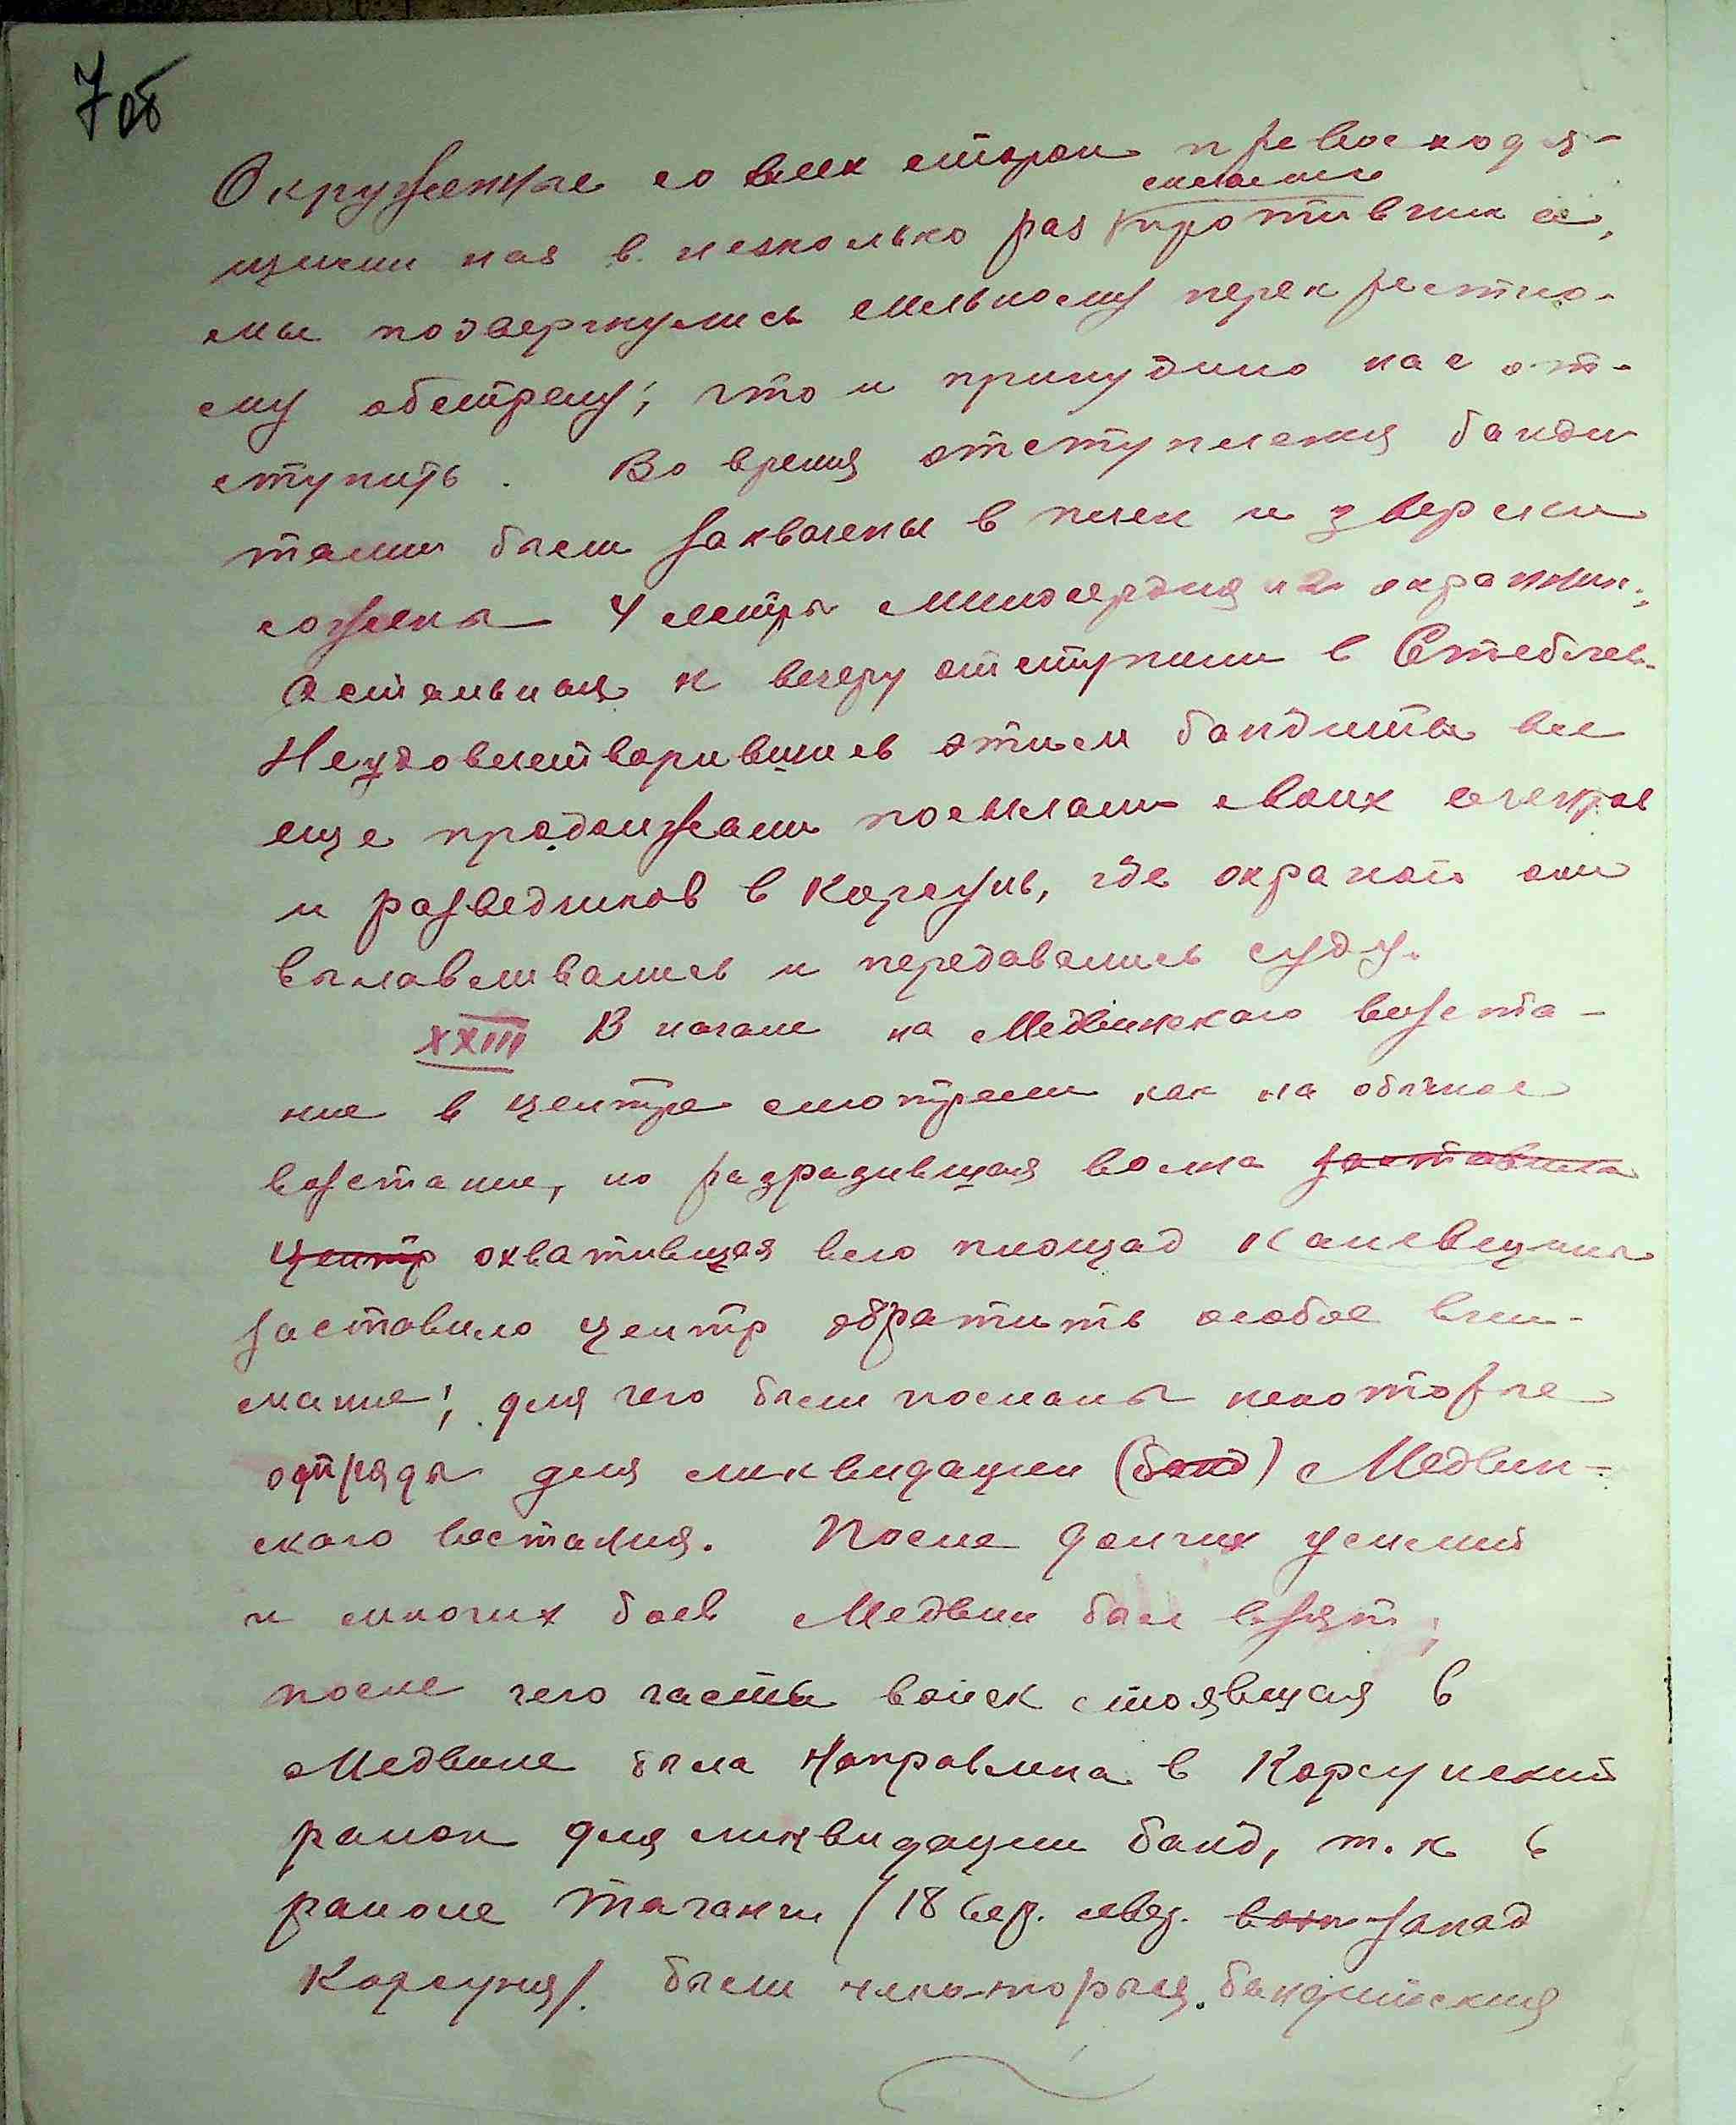 7 об
Окруженные со всех сторон превосходя-
силами
щими нас в несколько раз противника,
мы подвергнулись сильному перекрестно-
му обстрелу; что и принудило нас от-
ступить. Во время отступления банди
тами были захвачены в плен и зверски
сожжены 4 сестры милосердия и 2 охранник.,
остальныя к вечеру отступили в Стеблев.
Неудовлетворившись этим бандиты все
еще продолжали посылали своих агентов
и разведчиков в Корсунь, где охраной они
вылавливались и передавались суду.
XXIII В начале на Медвинскаго возста-
ние в центре смотрели как на обычное
возстание, но разразившая волна заставила
центр охватившая всю площад Каневщины
заставило центр обратить особое вни-
мание; для чего были посланы некоторые
отряды для ликвидации (банд) Медвин-
ского востания. После долгих усилий
и многих боев Медвин был взят;
после чего часть войск стоявщая в
Медвине была направлена в Корсунский
район для ликвидации банд, т.к в
районе Таганчи (18 вер. сев. запад
Корсуня). были неко-торыя бандитския